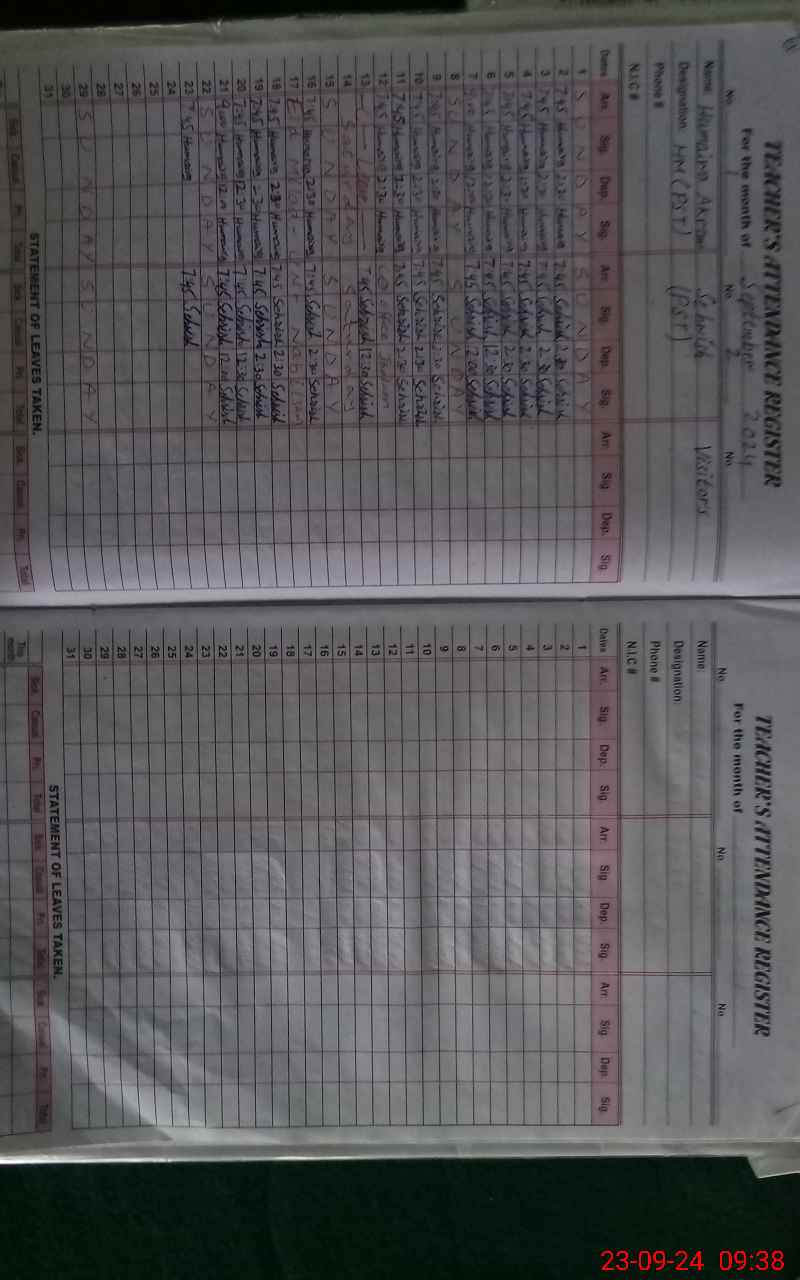 TEACHER'S ATTENDANCE REGISTER
For the month of September 2024
No. 1 No. 2 No.
Name Humaira Akram Sehrish Visitors
Designation HM (PST) (PST)
Phone #
N.I.C #
Dates Arr. Sig. Dep. Sig. Arr. Sig. Dep. Sig. Arr. Sig. Dep. Sig.
1 S U N D A Y S U N D A Y
2 7:45 Humaira 2:30 Humaira 7:45 Sehrish 2:30 Sehrish
3 7:45 Humaira 2:30 Humaira 7:45 Sehrish 2:30 Sehrish
4 7:45 Humaira 2:30 Humaira 7:45 Sehrish 2:30 Sehrish
5 7:45 Humaira 2:30 Humaira 7:45 Sehrish 2:30 Sehrish
6 7:45 Humaira Humaira 7:45 Sehrish 12:30 Sehrish
7 Humaira Humaira 7:45 Sehrish 2:00 Sehrish
8 S U N D A Y S U N D A Y
9 7:45 Humaira 2:30 Humaira 7:45 Sehrish 2:30 Sehrish
10 7:45 Humaira 2:30 Humaira 7:45 Sehrish 2:30 Sehrish
11 7:45 Humaira 2:30 Humaira 7:45 Sehrish 2:30 Sehrish
12 7:45 Humaira 2:30 Humaira office
13 7:45 Sehrish 12:30 Sehrish
14 Saturday Saturday
15 S U N D A Y S U N D A Y
16 7:45 Humaira 2:30 Humaira 7:45 Sehrish 2:30 Sehrish
17 Eid Milad-un-Nabi
18 7:45 Humaira 2:30 Humaira 7:45 Sehrish 2:30 Sehrish
19 7:45 Humaira 2:30 Humaira 7:45 Sehrish 2:30 Sehrish
20 7:45 Humaira 12:30 Humaira 7:45 Sehrish 12:30 Sehrish
21 Humaira Humaira 7:45 Sehrish 12:00 Sehrish
22 S U N D A Y S U N D A Y
23 7:45 Humaira 7:45 Sehrish
24
25
26
27
28
29 S U N D A Y S U N D A Y
30
31
STATEMENT OF LEAVES TAKEN.
Sick Casual Pri. Total Sick Casual Pri. Total Sick Casual Pri. Total
TEACHER'S ATTENDANCE REGISTER
For the month of
No. No. No.
Name:
Designation:
Phone #
N.I.C #
Dates Arr. Sig. Dep. Sig. Arr. Sig. Dep. Sig. Arr. Sig. Dep. Sig.
1
2
3
4
5
6
7
8
9
10
11
12
13
14
15
16
17
18
19
20
21
22
23
24
25
26
27
28
29
30
31
STATEMENT OF LEAVES TAKEN.
This month Sick Casual Pri. Total Sick Casual Pri. Total Sick Casual Pri. Total
23-09-24 09:38